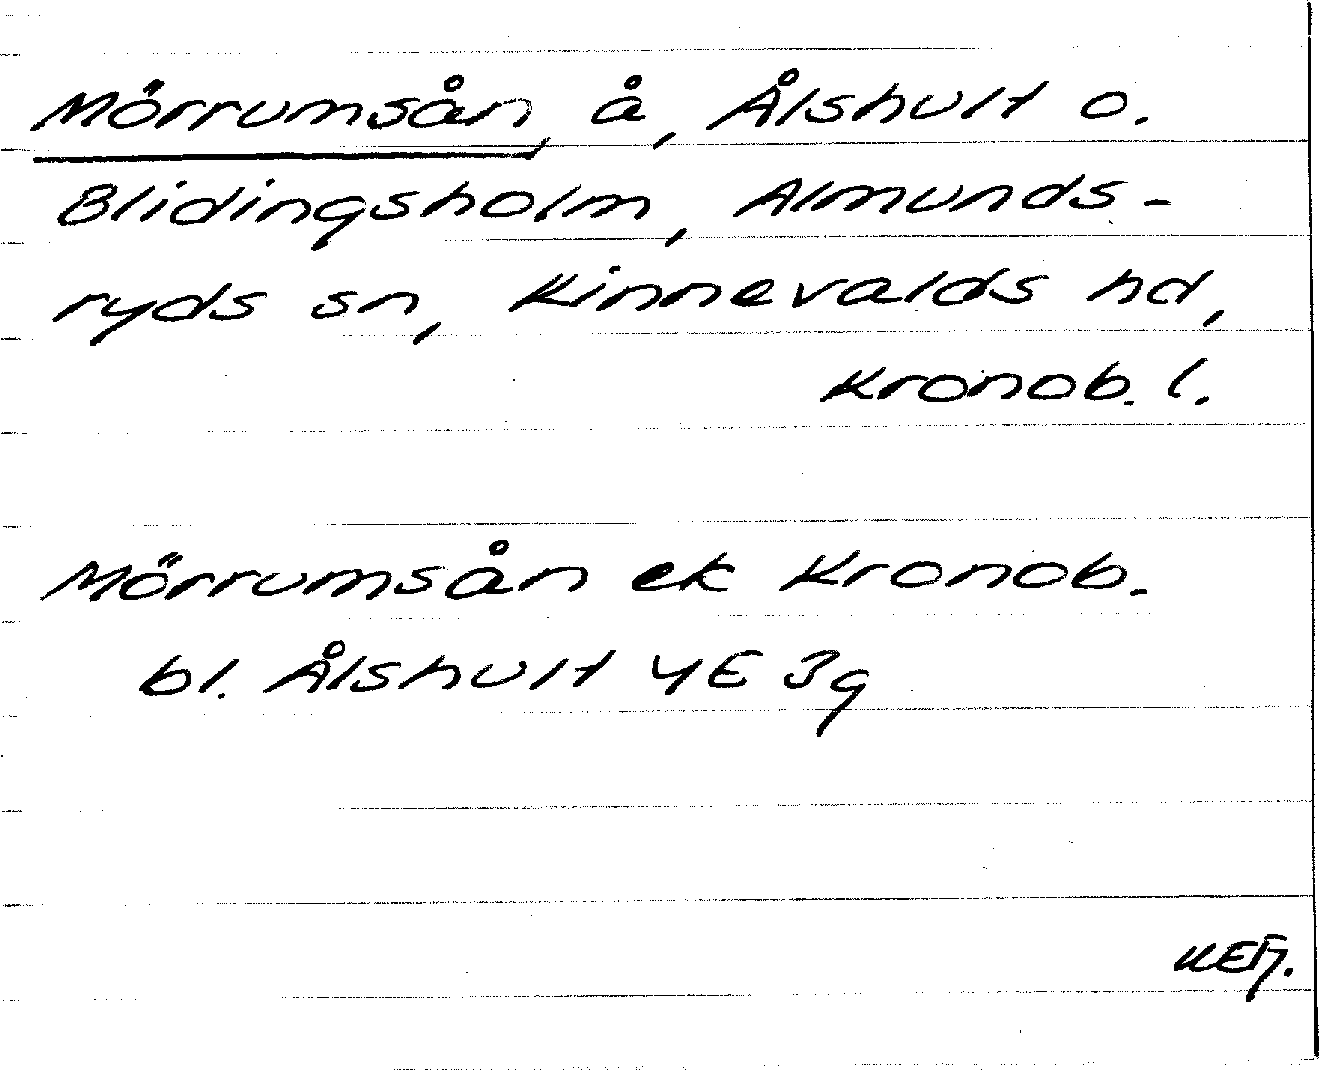 Mörrumsån, å, Ålshult o.
Blidingsholm, Almunds-
ryds sn, Kinnevalds hd,
Kronob. l.
Mörrumsån ek Kronob.
bl. Ålshult 4E 3g